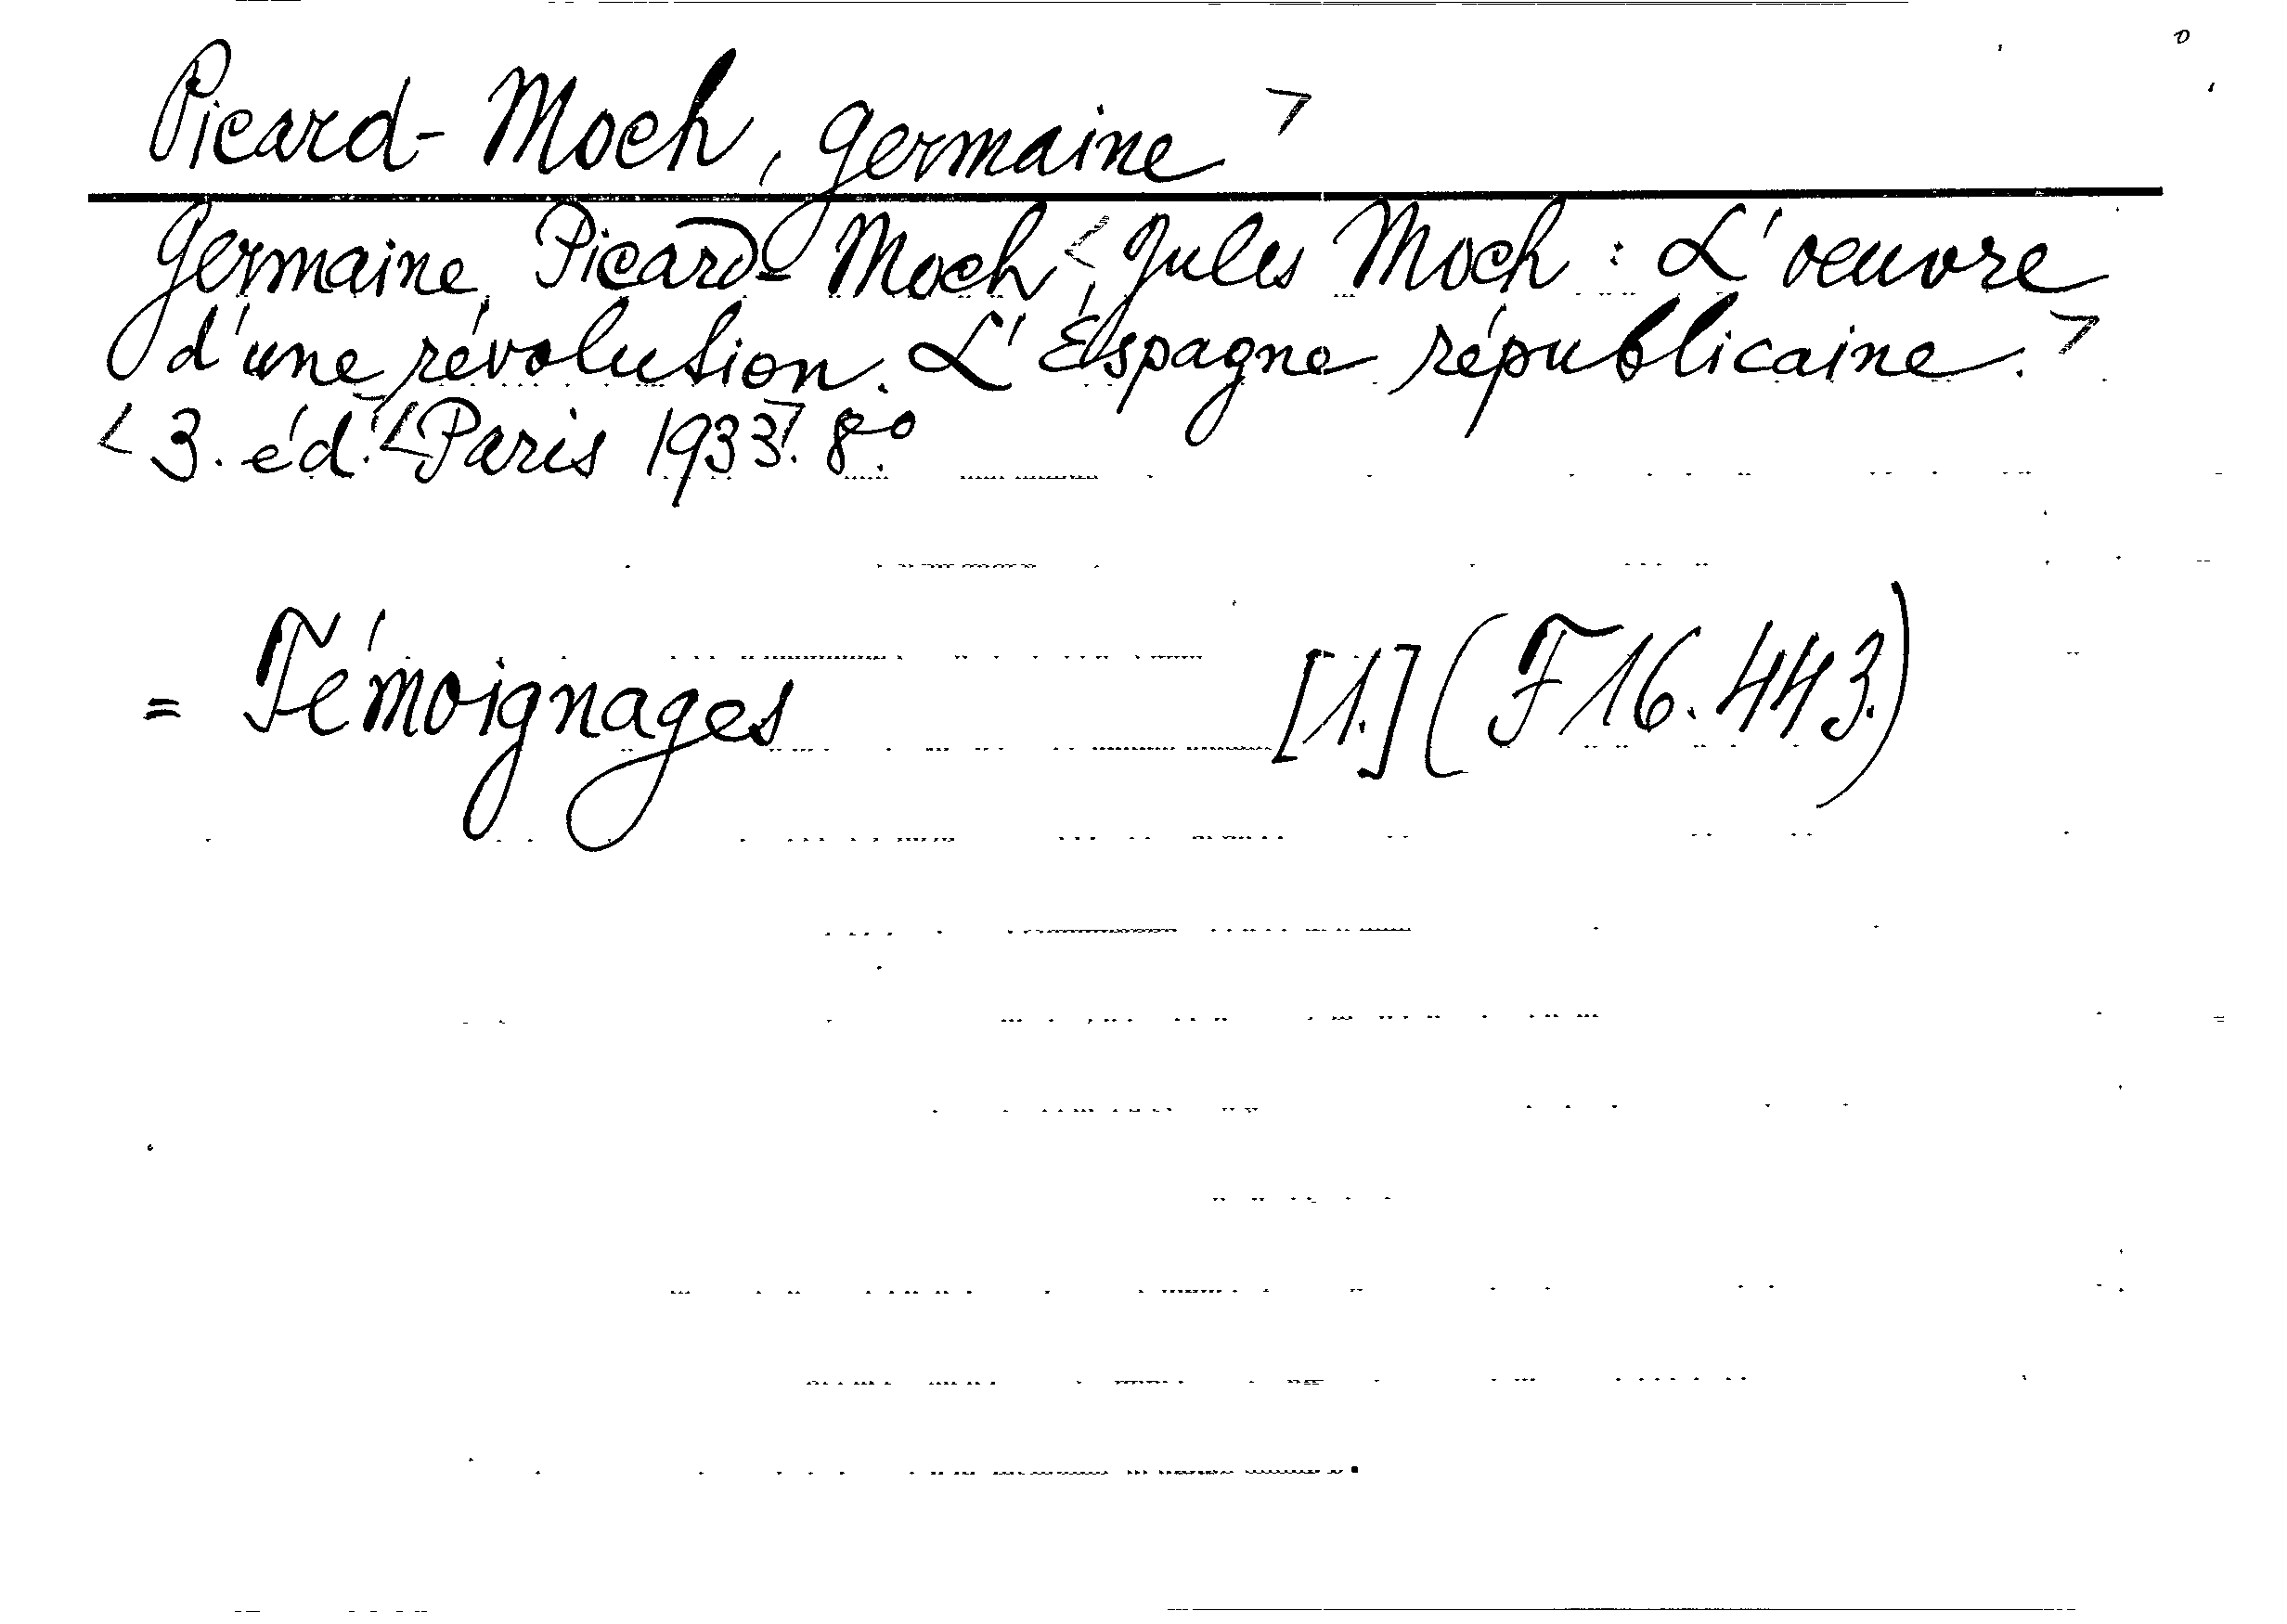 Picard-Moch, Germaine >
Germaine Picard-Moch <, Jules Moch : L'oeuvre
d'une révolution. L'Espagne républicaine. >
< 3. éd. > < Paris 1933 >. 8°.
= Témoignages [1.] (F 16.443.)